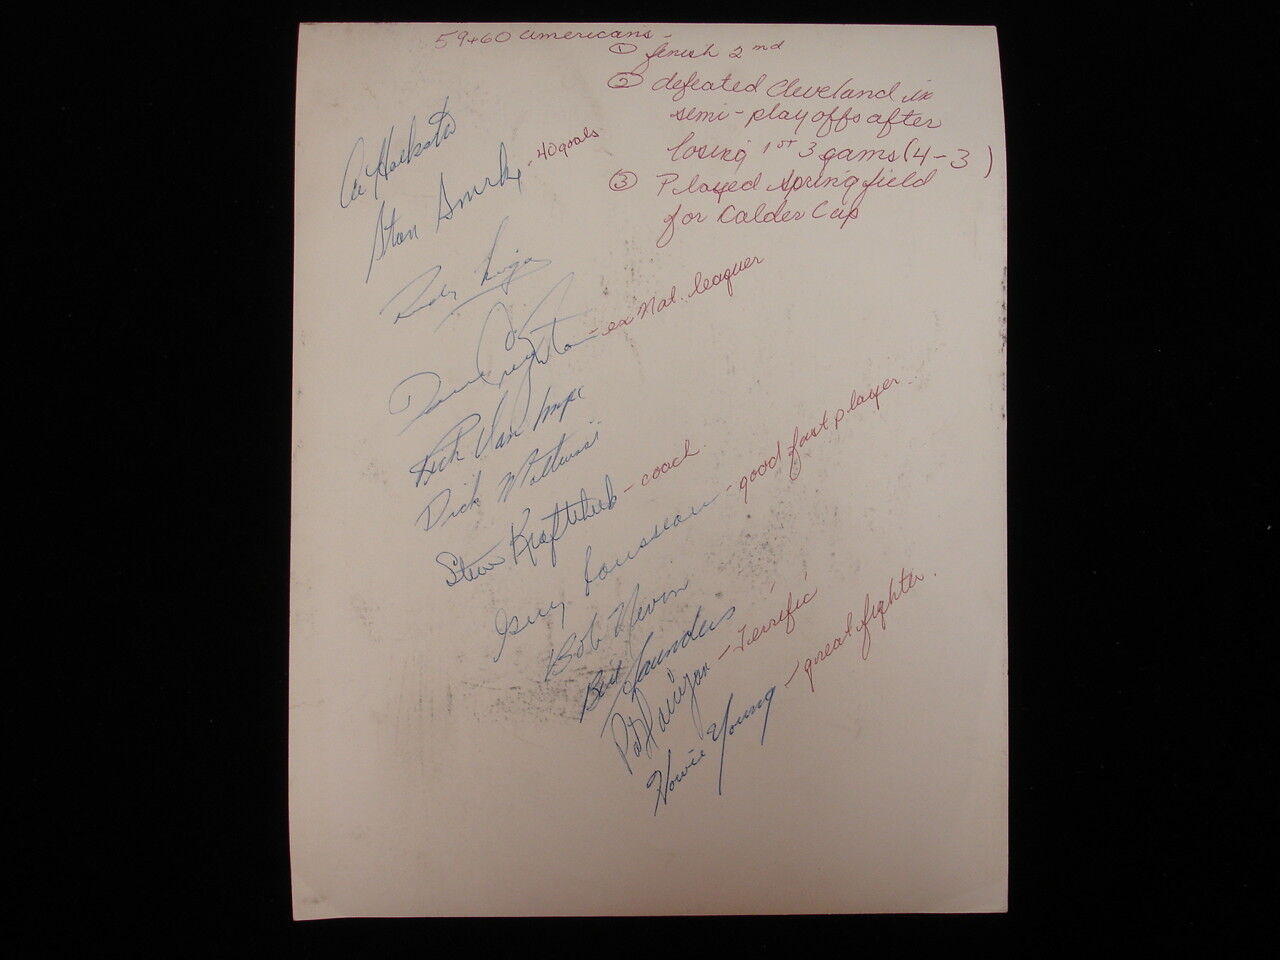 59+60 Americans -
① finish 2nd
② defeated Cleveland in
semi-playoffs after
losing 1st 3 gams (4-3)
③ Played Springfield
for Calder Cup
Stan Smrke - 40 goals
Rudy Migay
Dave Creighton - ex Nat. leaguer
Rich Van Impe
Dick Mattiussi
Steve Kraftcheck - coach
Guy Rousseau - good fast player
Bob Nevin
Bert Saunders
Pat Hannigan - terrific
Howie Young - great fighter.